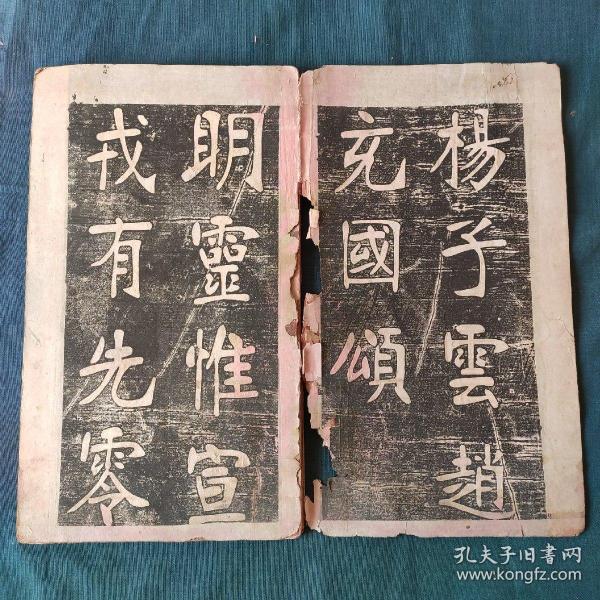 楊子雲趙
充國頌
明靈惟宣
戎有先零
孔夫子旧书网
www.kongfz.com